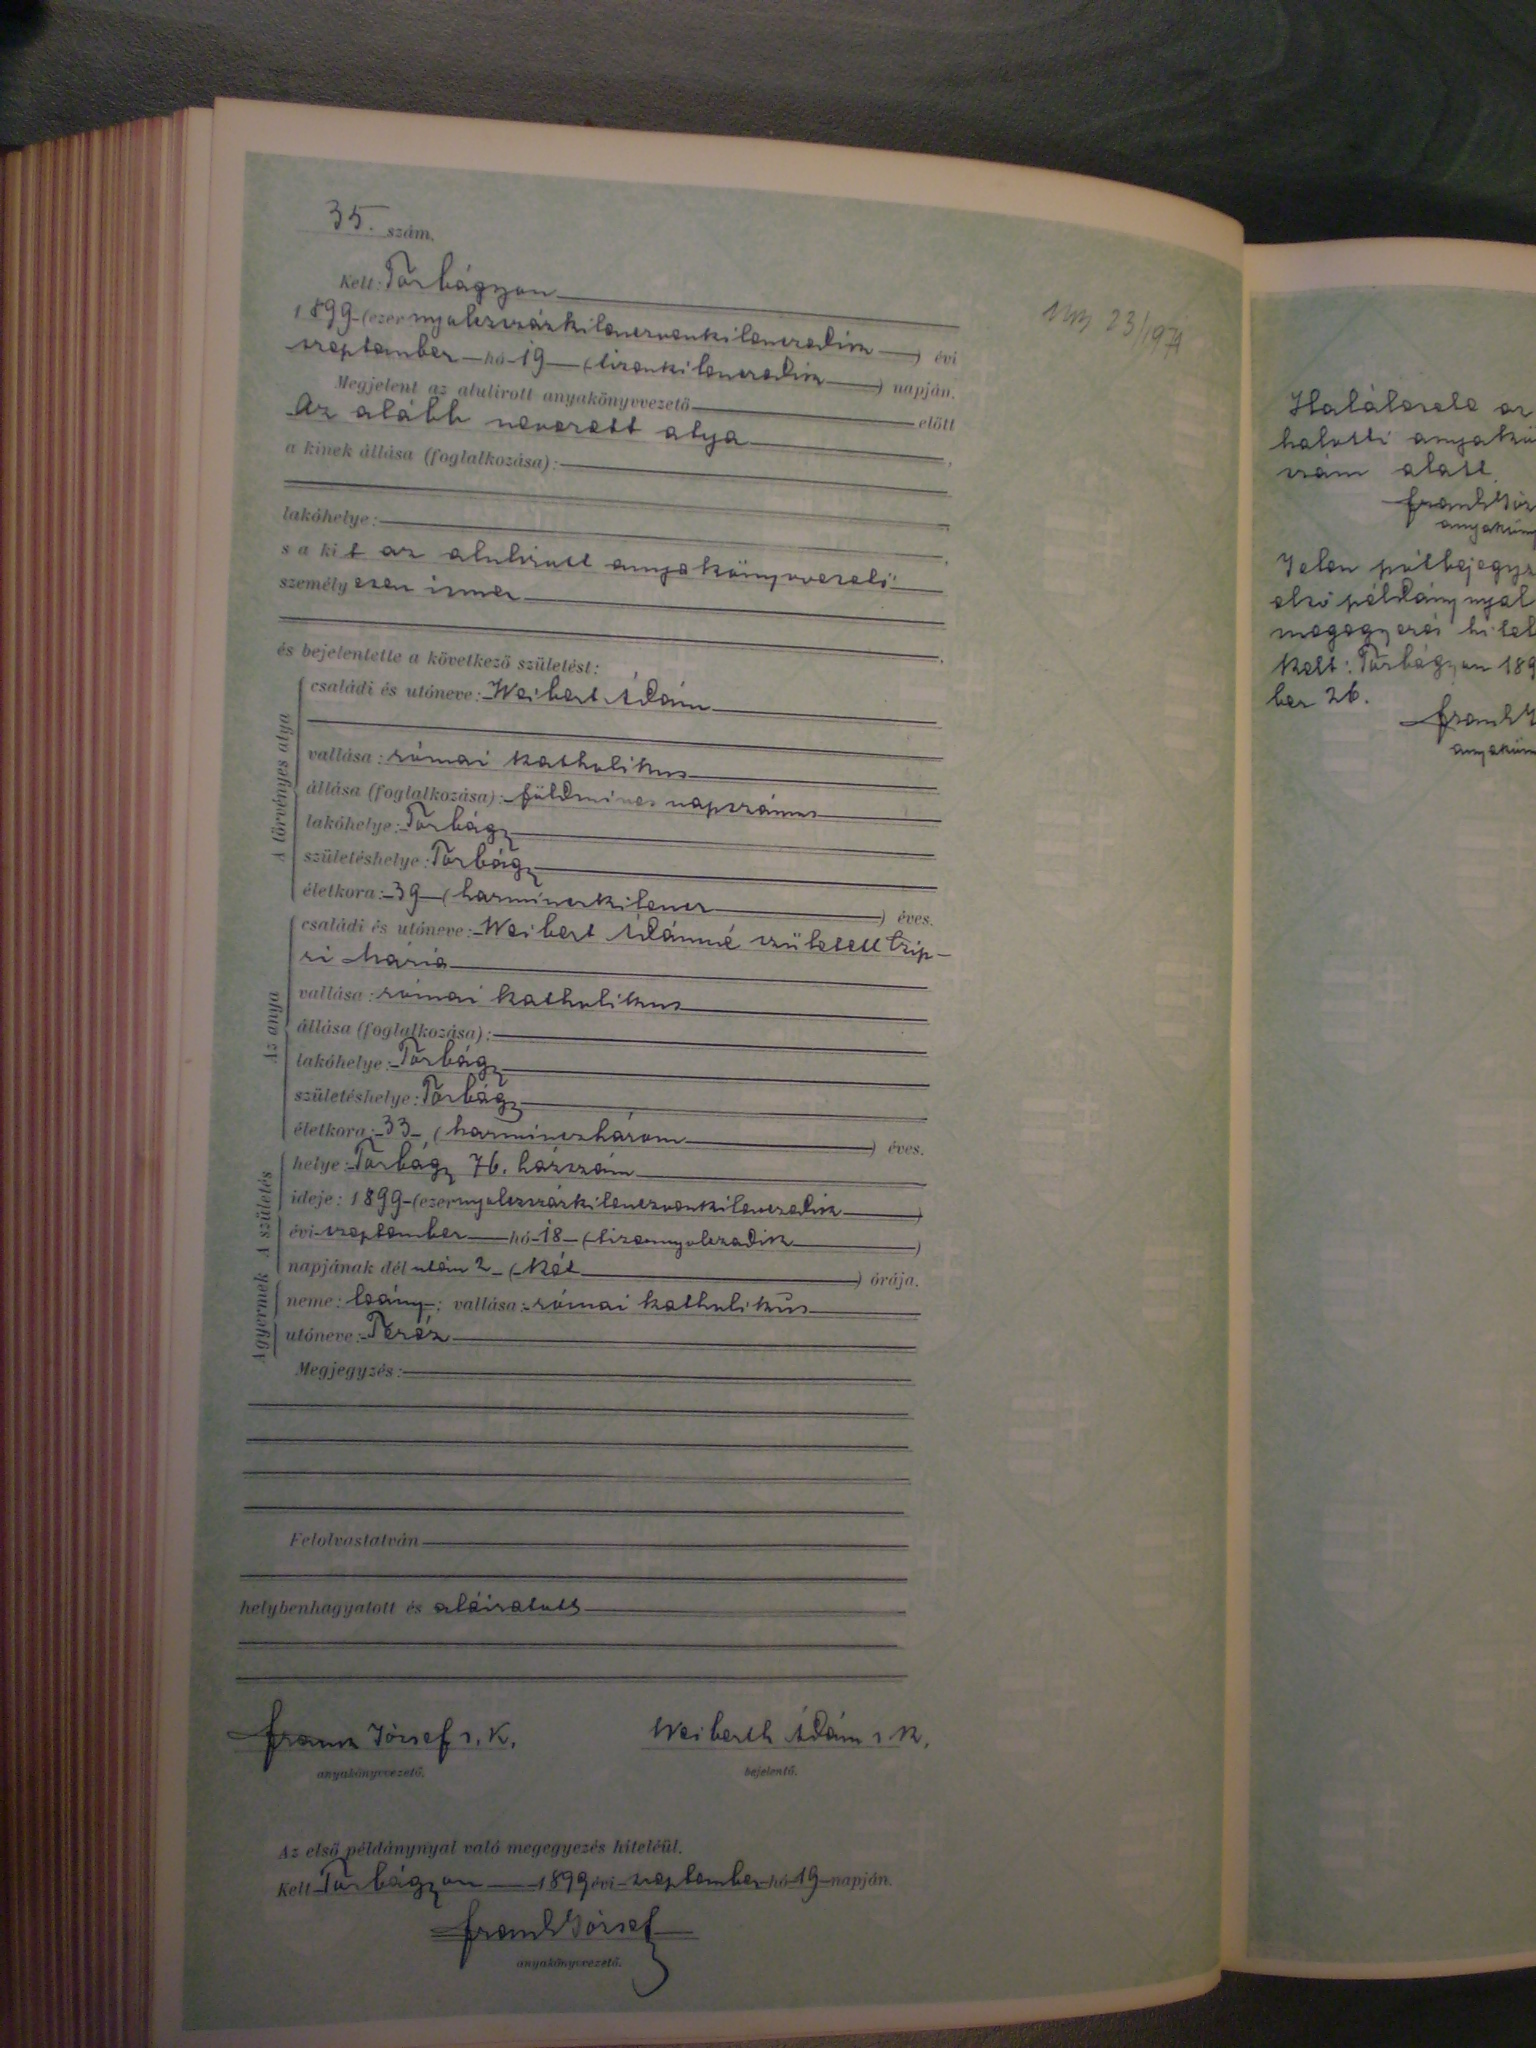 35. szám.
Kelt: Törbágyon
1899 (ezernyolczszázkilenczvenkilenczedik) évi
szeptember hó 19 (tizenkilenczedik) napján.
Megjelent az alulirott anyakönyvvezető előtt
Az alább nevezett atya,
a kinek állása (foglalkozása):
lakóhelye:
s a kit az alulirott anyakönyvvezető
személyesen ismer
és bejelentette a következő születést:
A törvényes atya
családi és utóneve: Weibert Ádám
vallása: római katholikus
állása (foglalkozása): földmives napszámos
lakóhelye: Törbágy
születéshelye: Törbágy
életkora: 39 (harminczkilencz) éves.
Az anya
családi és utóneve: Weibert Ádámné született Czip-
ri Mária
vallása: római katholikus
állása (foglalkozása):
lakóhelye: Törbágy
születéshelye: Törbágy
életkora: 33 (harminczhárom) éves.
A születés
helye: Törbágy 76. házszám
ideje: 1899 (ezernyolczszázkilenczvenkilenczedik)
évi szeptember hó 18 (tizennyolczadik)
napjának dél után 2 (két) órája.
A gyermek
neme: leány; vallása: római katholikus
utóneve: Teréz
Megjegyzés:
Felolvastatván
helybenhagyatott és aláiratott
Frank József s. k.
anyakönyvvezető.
Weiberth Ádám s. k.
bejelentő.
Az első példánynyal való megegyezés hiteléül.
Kelt Törbágyon 1899 évi szeptember hó 19 napján.
Frank József
anyakönyvvezető.
23/1974
Halálesete az
halotti anyakö
szám alatt.
Frank Józs
anyaköny
Jelen pótbejegyz
első példánynyal
megegyezés hitel
Kelt: Törbágyon 189
ber 26.
Frank J
anyaköny